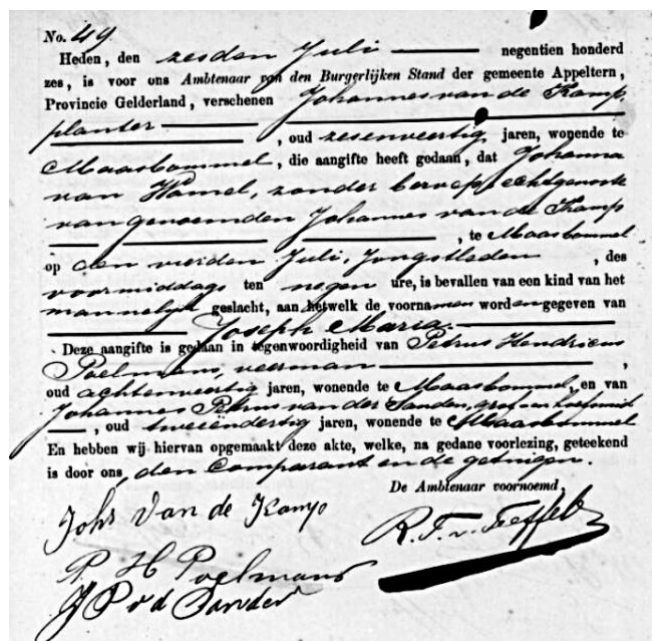 No. 49
Heden, den zesden Juli negentien honderd
zes, is voor ons Ambtenaar van den Burgerlijken Stand der gemeente Appeltern,
Provincie Gelderland, verschenen Johannes van de Kamp
planter , oud zesenveertig jaren, wonende te
Maasbommel, die aangifte heeft gedaan, dat Johanna
van Hemel, zonder beroep, echtgenoote
van genoemden Johannes van de Kamp
, te Maasbommel
op den vierden Juli, Jongstleden , des
voormiddags ten negen ure, is bevallen van een kind van het
mannelijk geslacht, aan hetwelk de voornamen worden gegeven van
Joseph Maria.
Deze aangifte is gedaan in tegenwoordigheid van Petrus Hendricus
Poelmans, veerman ,
oud achtenveertig jaren, wonende te Maasbommel, en van
Johannes Petrus van der Sanden, grof en hoefsmit
, oud tweeëndertig jaren, wonende te Maasbommel
En hebben wij hiervan opgemaakt deze akte, welke, na gedane voorlezing, geteekend
is door ons, den Comparant en de getuigen.
De Ambtenaar voornoemd
Johs Van de Kamp
R. F. v.
P. H Poelmans
J P v d Sanden